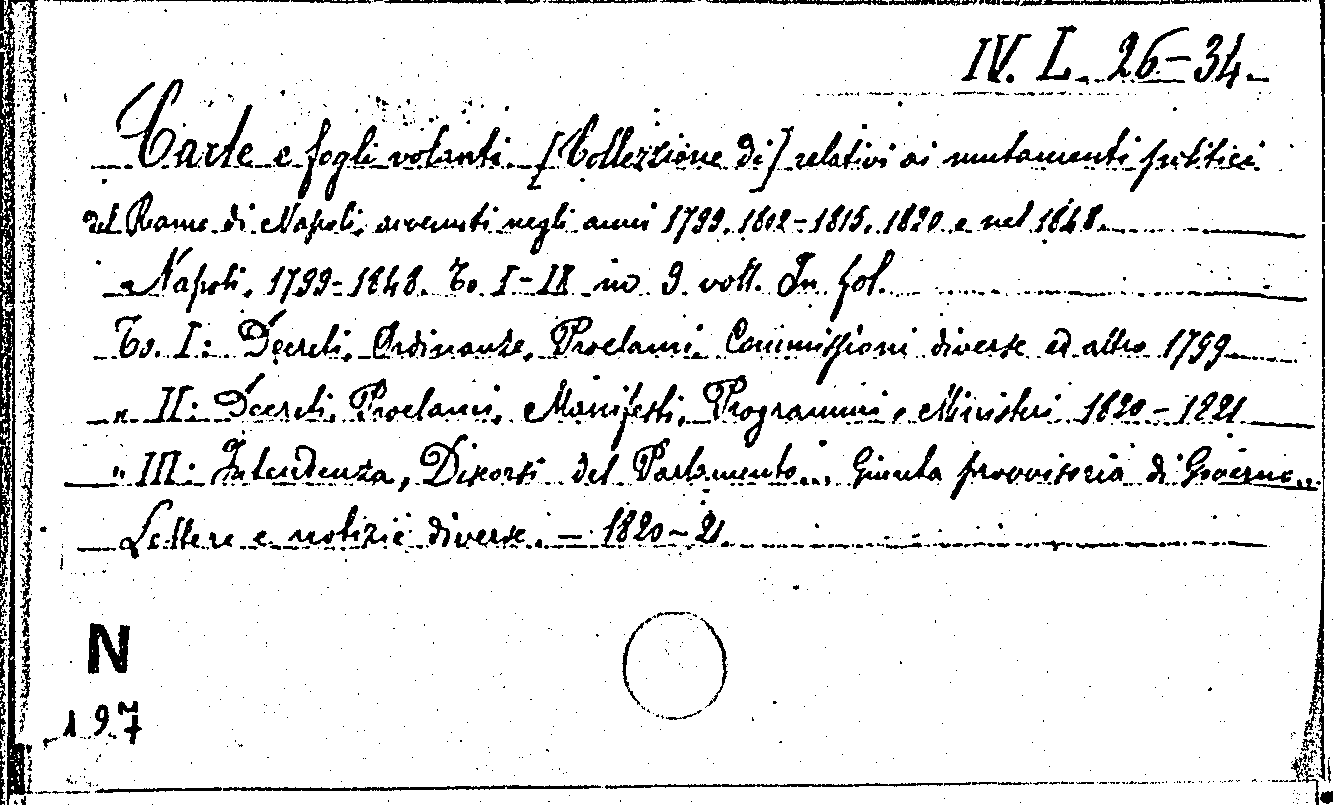 IV. L. 26-34.
Carte e fogli volanti. [Collezione di] relativi ai mutamenti politici
del Reame di Napoli, avvenuti negli anni 1799. 1802-1815. 1820 e nel 1848.
Napoli, 1799-1848. To. I-IX in 9 voll. In fol.
To. I: Decreti, Ordinanze, Proclami, Commissioni diverse ed altro 1799
" II: Decreti, Proclami, Manifesti, Programmi e Ministeri 1820-1821
" III: Intendenza, Discorsi del Parlamento..., Giunta provvisoria di Governo...
Lettere e notizie diverse. - 1820-21.
N
197